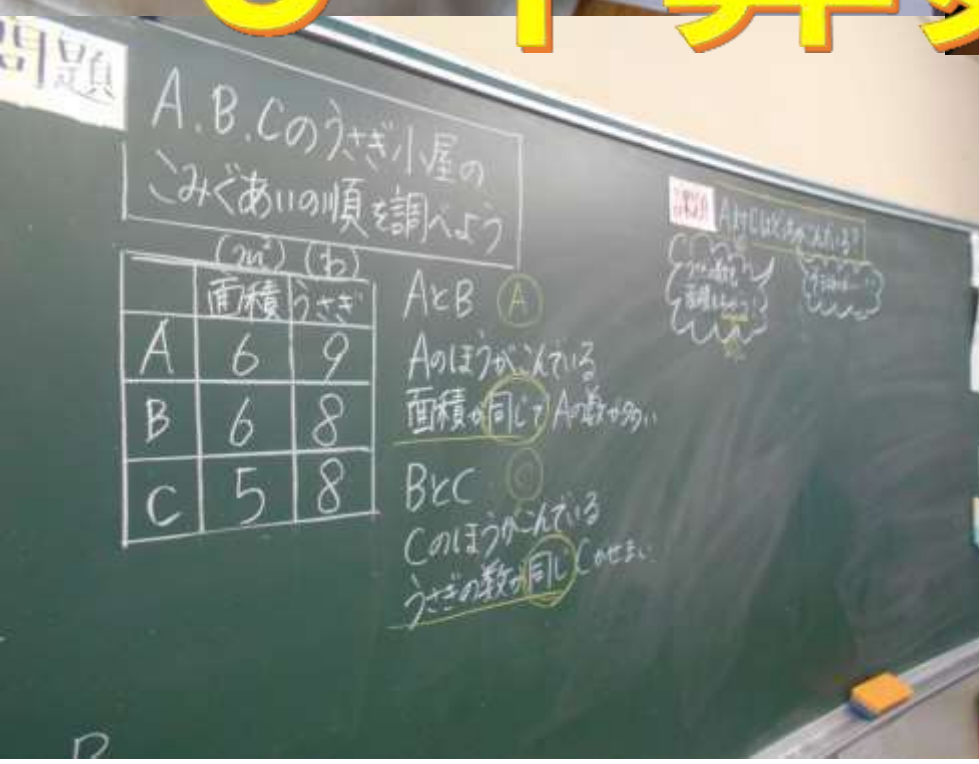 問題
A.B.Cのうさぎ小屋の
こみぐあいの順を調べよう
(m²) (わ)
面積 うさぎ
A 6 9
B 6 8
C 5 8
AとB A
Aのほうがこんでいる
面積が同じで Aの数が多い
BとC C
Cのほうがこんでいる
うさぎの数が同じ Cがせまい
AとCはどっちがこんでいる?